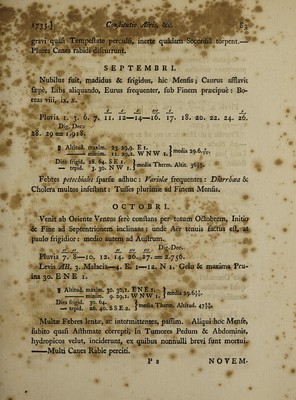 1735.] Constitutio Aëris, &c. 83
gravi quasi Tempestate perculsi, inerte quâdam Socordiâ torpent.—
Plures Canes rabidi discurrunt.
SEPTEMBRI.
Nubilus fuit, madidus & frigidus, hic Mensis; Caurus afflavit
sæpè, Libs aliquando, Eurus frequenter, sub Finem præcipuè: Bo-
reas viii, ix, x.
Pluvia 1. 3. 6. 7. 11. 12—14—16. 17. 18. 20. 22. 24. 26.
Dig. Dec.
28. 29 = 1.918.
Altitud. maxim. 23. 29.9. E 1.
minim. 11. 29.2. W N W 1. } media 29.6.
Dies frigid. 28. 64. S E 1.
— tepid. 3. 30. N W 1. } media Therm. Altit.
Febres petechiales sparsìm adhuc: Variolæ frequentes: Diarrhœa &
Cholera multos infestant: Tusses plurimæ ad Finem Mensis.
OCTOBRI.
Venit ab Oriente Ventus ferè constans per totum Octobrem, Initio
& Fine ad Septentrionem inclinans: unde Aër tenuis factus est, at
paulo frigidior: medio autem ad Austrum.
Dig. Dec.
Pluvia 7. 8—10, 12. 14. 26. 27. = 2.756.
Levis AB, 3. Malacia—4. E. 1—12. N 1. Gelu & maxima Prui-
na 30. E N E 1.
Altitud. maxim. 30. 30.1. E N E 1.
minim. 9. 29.1. W N W 1. } media 29.
Dies frigid. 30. 64.
— tepid. 26. 40. S S E 2. } media Therm. Altitud. 47
Multæ Febres lentæ, ac intermittentes, passim. Aliqui hoc Mense,
subito quasi Asthmate correpti, in Tumores Pedum & Abdominis,
hydropicos velut, inciderunt, ex quibus nonnulli brevi sunt mortui.
——Multi Canes Rabie perciti.
P 2 NOVEM-